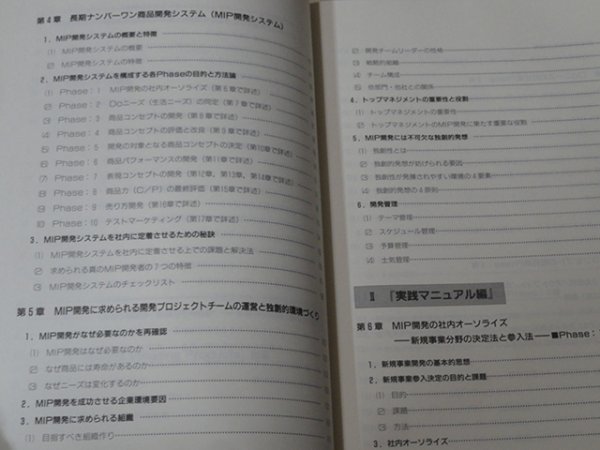 第4章 長期ナンバーワン商品開発システム（MIP開発システム）
1．MIP開発システムの概要と特徴
(1) MIP開発システムの概要
(2) MIP開発システムの特徴
2．MIP開発システムを構成する各Phaseの目的と方法論
(1) Phase：1 MIP開発の社内オーソライズ（第6章で詳述）
(2) Phase：2 Doニーズ（生活ニーズ）の同定（第7章で詳述）
(3) Phase：3 商品コンセプトの開発（第8章で詳述）
(4) Phase：4 商品コンセプトの評価と改良（第9章で詳述）
(5) Phase：5 開発の対象となる商品コンセプトの決定（第10章で詳述）
(6) Phase：6 商品パフォーマンスの開発（第11章で詳述）
(7) Phase：7 表現コンセプトの開発（第12章、第13章、第14章で詳述）
(8) Phase：8 商品力（C／P）の最終評価（第15章で詳述）
(9) Phase：9 売り方開発（第16章で詳述）
(10) Phase：10 テストマーケティング（第17章で詳述）
3．MIP開発システムを社内に定着させるための秘訣
(1) MIP開発システムを社内に定着させる上での課題と解決法
(2) 求められる真のMIP開発者の7つの特徴
(3) MIP開発システムのチェックリスト
第5章 MIP開発に求められる開発プロジェクトチームの運営と独創的環境づくり
1．MIP開発がなぜ必要なのかを再確認
(1) MIP開発はなぜ必要なのか
(2) なぜ商品には寿命があるのか
(3) なぜニーズは変化するのか
2．MIP開発を成功させる企業環境要因
3．MIP開発に求められる組織
(1) 目指すべき組織作り
(2) 開発チームリーダーの性格
(3) 戦略的組織
(4) チーム構成
(5) 他部門・他社との関係
4．トップマネジメントの重要性と役割
(1) トップマネジメントの重要性
(2) トップマネジメントのMIP開発に果たす重要な役割
5．MIP開発には不可欠な独創的発想
(1) 独創性とは
(2) 独創的発想が妨げられる要因
(3) 独創性が発揮されやすい環境の4要素
(4) 独創的発想の4原則
6．開発管理
(1) テーマ管理
(2) スケジュール管理
(3) 予算管理
(4) 士気管理
Ⅱ 『実践マニュアル編』
第6章 MIP開発の社内オーソライズ
――新規事業分野の決定法と参入法――■Phase：
1．新規事業開発の基本的思想
2．新規事業参入決定の目的と課題
(1) 目的
(2) 課題
(3) 方法
3．社内オーソライズ